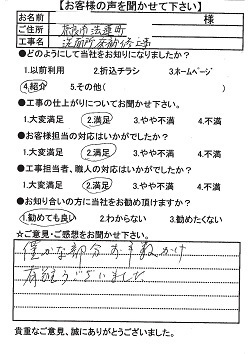 【お客様の声を聞かせて下さい】
お名前 様
ご住所 奈良市法蓮町
工事名 洗面所床部分修工事
●どのようにして当社をお知りになりましたか?
1.以前利用 2.折込チラシ 3.ホームページ
4.紹介 5.その他( )
●工事の仕上がりについてお聞かせ下さい。
1.大変満足 2.満足 3.やや不満 4.不満
●お客様担当の対応はいかがでしたか?
1.大変満足 2.満足 3.やや不満 4.不満
●工事担当者、職人の対応はいかがでしたか?
1.大変満足 2.満足 3.やや不満 4.不満
●お知り合いの方に当社をお勧め頂けますか?
1.勧めても良い 2.わからない 3.勧めたくない
☆ご意見・ご感想をお聞かせ下さい。
僅かな部分お手数かけ
有難うございました
貴重なご意見、誠にありがとうございました。